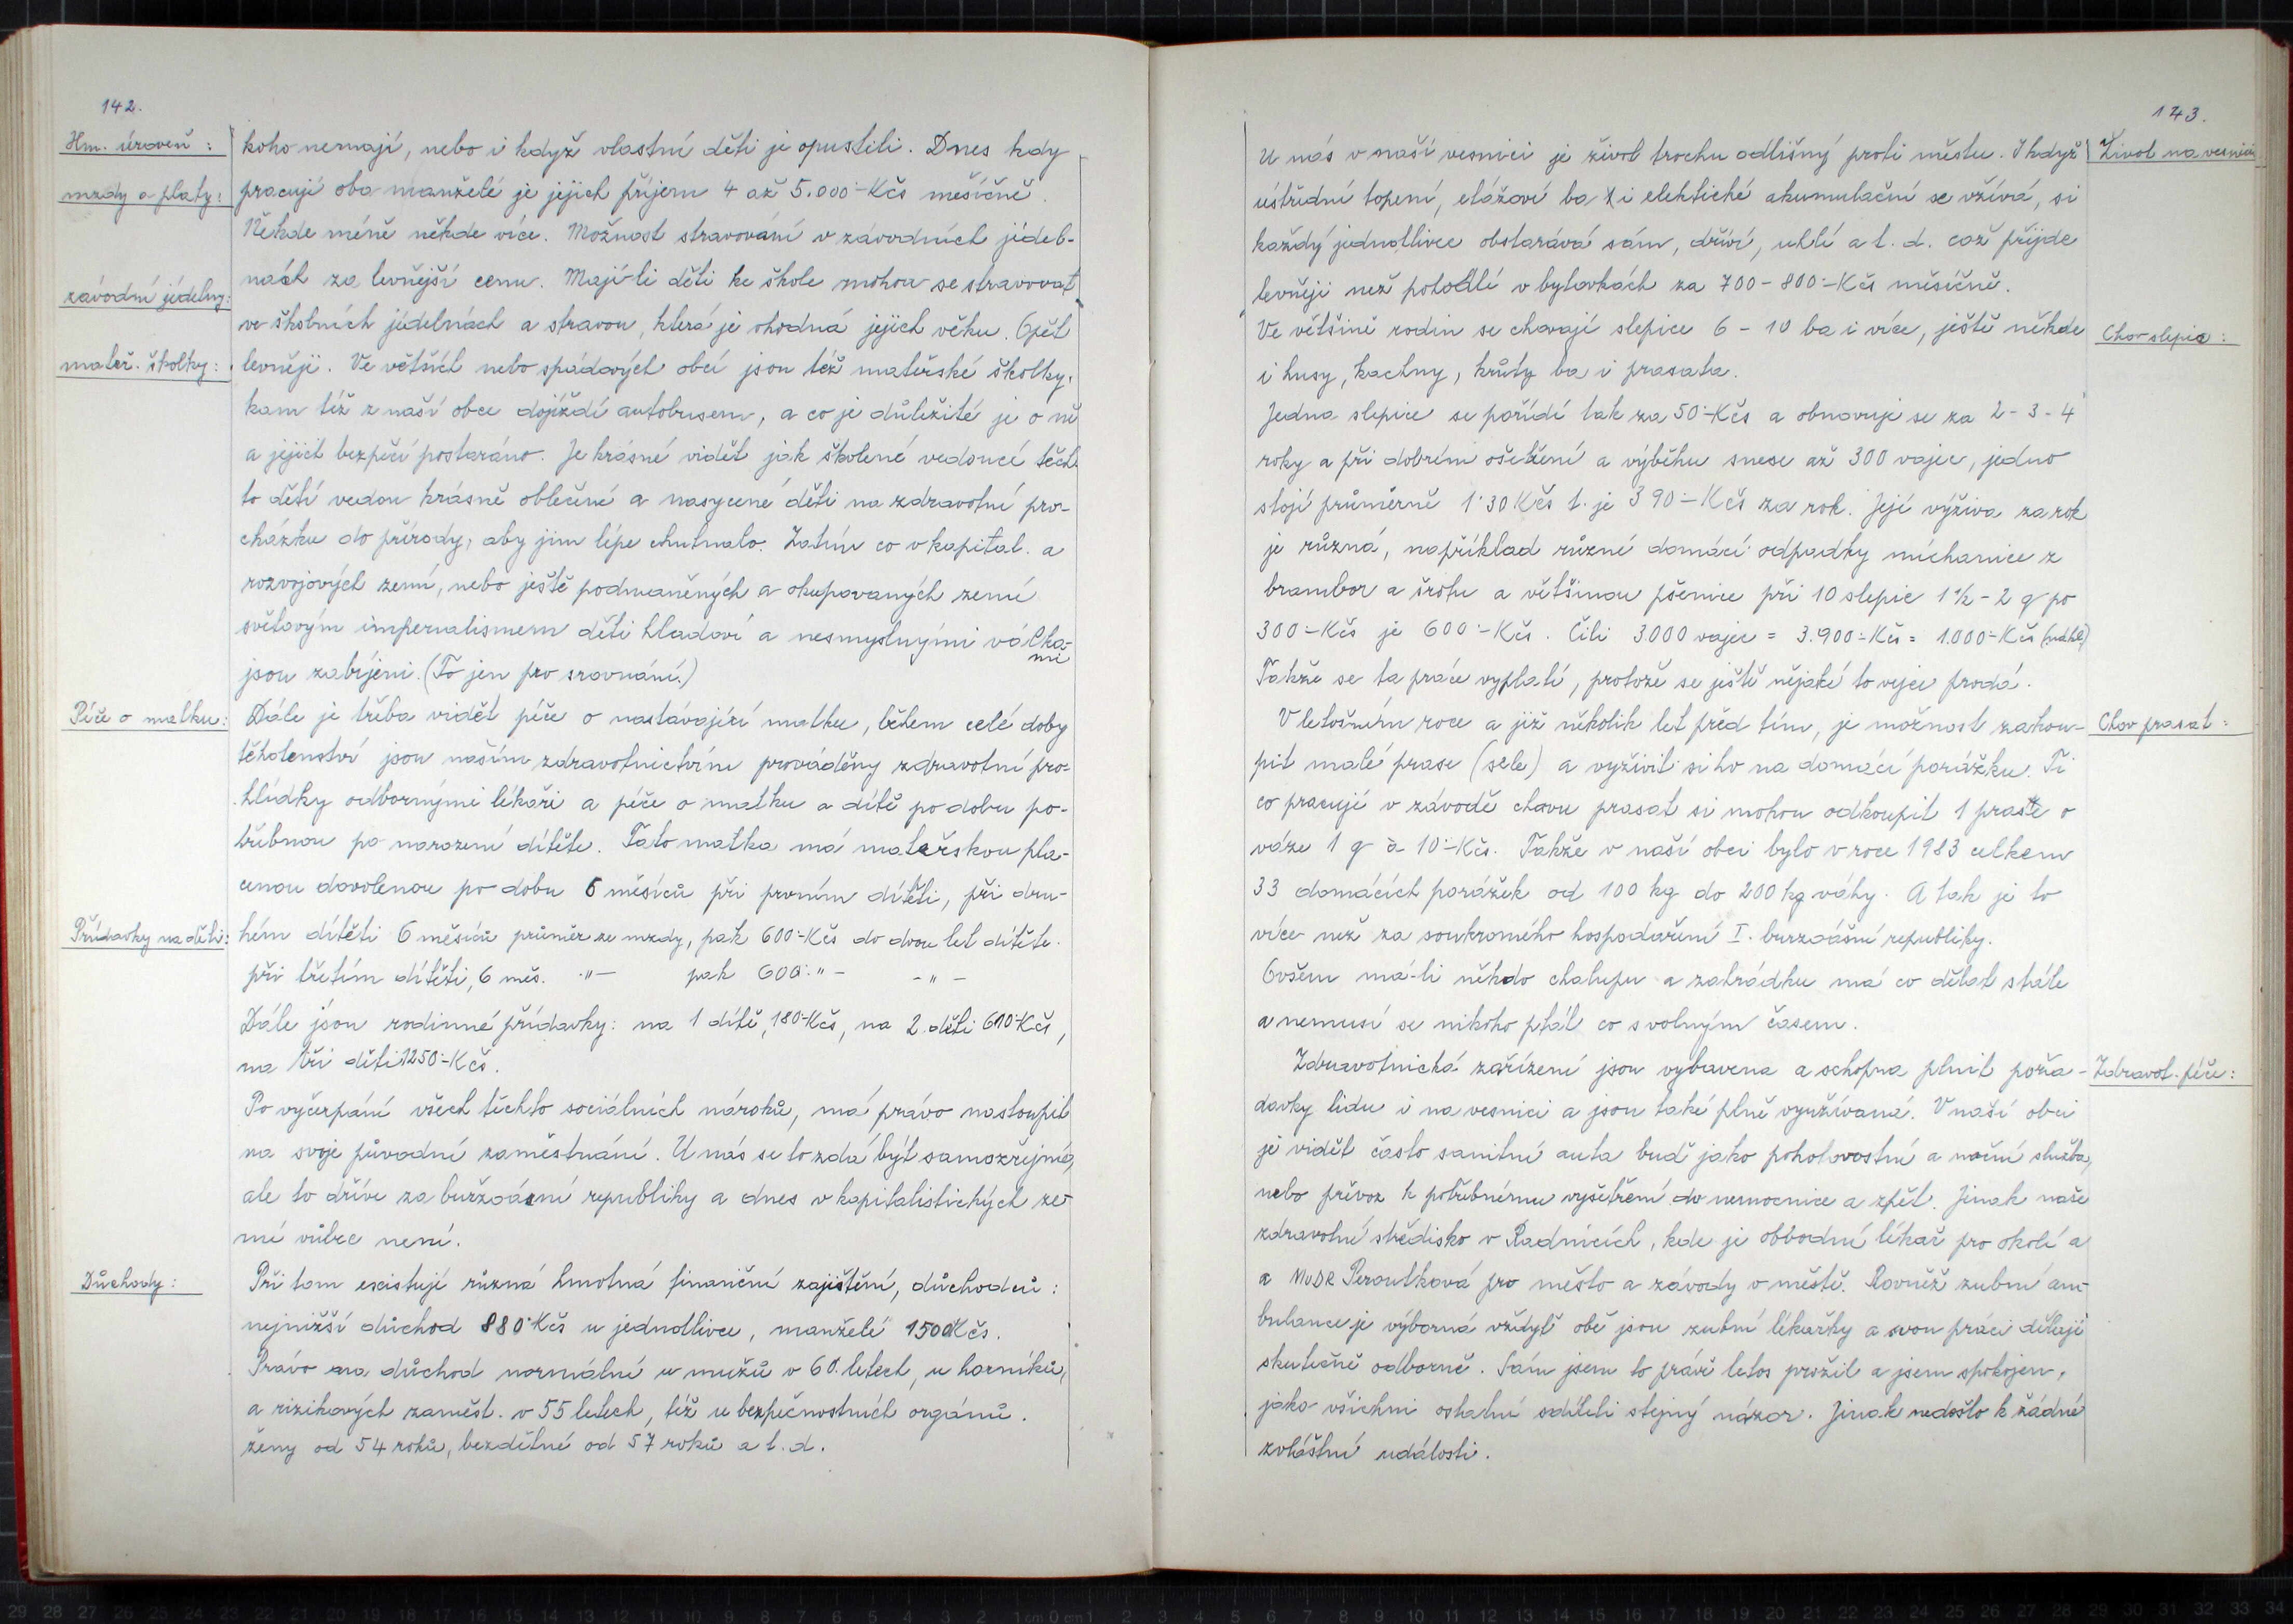 142.
Hm. úroveň :
mzdy a platy :
závodní jídelny:
mateř. školky :
Péče o matku :
Přídavky na děti :
Důchody :
koho nemají, nebo i když vlastní děti je opustili. Dnes kdy
pracují oba manželé je jejich příjem 4 až 5.000·-Kčs mešíčně.
Někde méně někde více. Možnost stravování v závodních jídeb-
nách za levnější cenu. Mají-li děti ke škole mohou se stravovat
ve školních jídelnách a stravou, která je vhodná jejich věku. Opět
levněji. Ve větších nebo spádových obcí jsou též mateřské školky,
kam též z naší obce dojíždí autobusem, a co je důležité je o ně
a jejich bezpečí postaráno. Je krásné vidět jak školené vedoucí těch
to dětí vedou krásně oblečené a nasycené děti na zdravotní pro-
cházku do přírody, aby jim lépe chutnalo. Zatím co v kapital. a
rozvojových zemí, nebo ještě podmaněných a okupovaných zemí
světovým imperialismem děti hladoví a nesmyslnými válka-
mi
jsou zabíjeni. (To jen pro srovnání.)
Dále je třeba vidět péče o nastávající matku, během celé doby
těhotenství jsou naším zdravotnictvím prováděny zdravotní pro-
hlídky odbornými lékaři a péče o matku a dítě po dobu po-
třebnou po narození dítěte. Tato matka má mateřskou pla-
cenou dovolenou po dobu 6 měsíců při prvním dítěti, při dru-
hém dítěti 6 měsíců průměr ze mzdy, pak 600·-Kčs do dvou let dítěte.
při třetím dítěti, 6 měs. -"- pak 600·"- -"-
Dále jsou rodinné přídavky: na 1 dítě, 180·-Kčs, na 2. děti 610·-Kčs,
na tři děti 1250·-Kčs.
Po vyčerpání všech těchto sociálních nároků, má právo nastoupit
na svoje původní zaměstnání. U nás se to zdá být samozřejmé,
ale to dříve za buržoázní republiky a dnes v kapitalistických ze-
mí vůbec není.
Při tom existují různá hmotná finanční zajištění, důchodců :
nejnižší důchod 880·Kčs u jednotlivce, manželé 1500Kčs.
Právo na důchod normální u mužů v 60. letech, u horníků,
a rizikových zaměst. v 55 letech, též u bezpečnostních orgánů.
ženy od 54 roků, bezdětné od 57 roků a t. d.
143.
U nás v naší vesnici je život trochu odlišný proti městu. I když
ústřední topení, etážové ba i elektické akumulační se vžívá, si
každý jednotlivec obstarává sám, dříví, uhlí a t. d. což přijde
levněji než pohodlí v bytovkách za 700-800·-Kčs měsíčně.
Ve většině rodin se chovají slepice 6 - 10 ba i více, ještě někde
i husy, kachny, krůty ba i prasata.
Jedna slepice se pořídí tak za 50·-Kčs a obnovuje se za 2-3-4
roky a při dobrém ošetření a výběhu snese až 300 vajec, jedno
stojí průměrně 1·30 Kčs t. je 390·-Kčs za rok. Její výživa za rok
je různá, například různé domácí odpadky míchanice z
brambor a šrotu a většinou pšenice při 10 slepic 1½-2 q po
300·-Kčs je 600·-Kčs. Čili 3000 vajec = 3.900·-Kčs = 1.000·-Kčs
Takže se ta práce vyplatí, protože se ještě nějaké to vejce prodá.
V letošním roce a již několik let před tím, je možnost zakou-
pit malé prase (sele) a vyživit si ho na domácí porážku. Ti
co pracují v závodě chovu prasat si mohou odkoupit 1 prase o
váze 1 q à 10·-Kčs. Takže v naší obci bylo v roce 1983 celkem
33 domácích porážek od 100 kg do 200 kg váhy. A tak je to
více než za soukromého hospodaření I. burzoášní republiky.
Ovšem má-li někdo chalupu a zahrádku má co dělat stále
a nemusí se nikoho ptát co s volným časem.
Zdravotnická zařízení jsou vybavena a schopna plnit poža-
davky lidu i na vesnici a jsou také plně využívaná. V naší obci
je vidět často sanitní auta buď jako pohotovostní a noční služba,
nebo převoz k potřebnému vyšetření do nemocnice a zpět. Jinak naše
zdravotní středisko v Radnicích, kde je obvodní lékař pro okolí a
a MUDR Peroutková pro město a závody v městě. Rovněž zubní am-
bulance je výborná vždyť obě jsou zubní lékařky a svou práci dělají
skutečně odborně. Sám jsem to právě letos prožil a jsem spokojen,
jako všichni ostatní sdíleli stejný názor. Jinak nedošlo k žádné
zvláštní události.
Život na vesnici
Chov slepic :
Chov prasat :
Zdravot. péče :